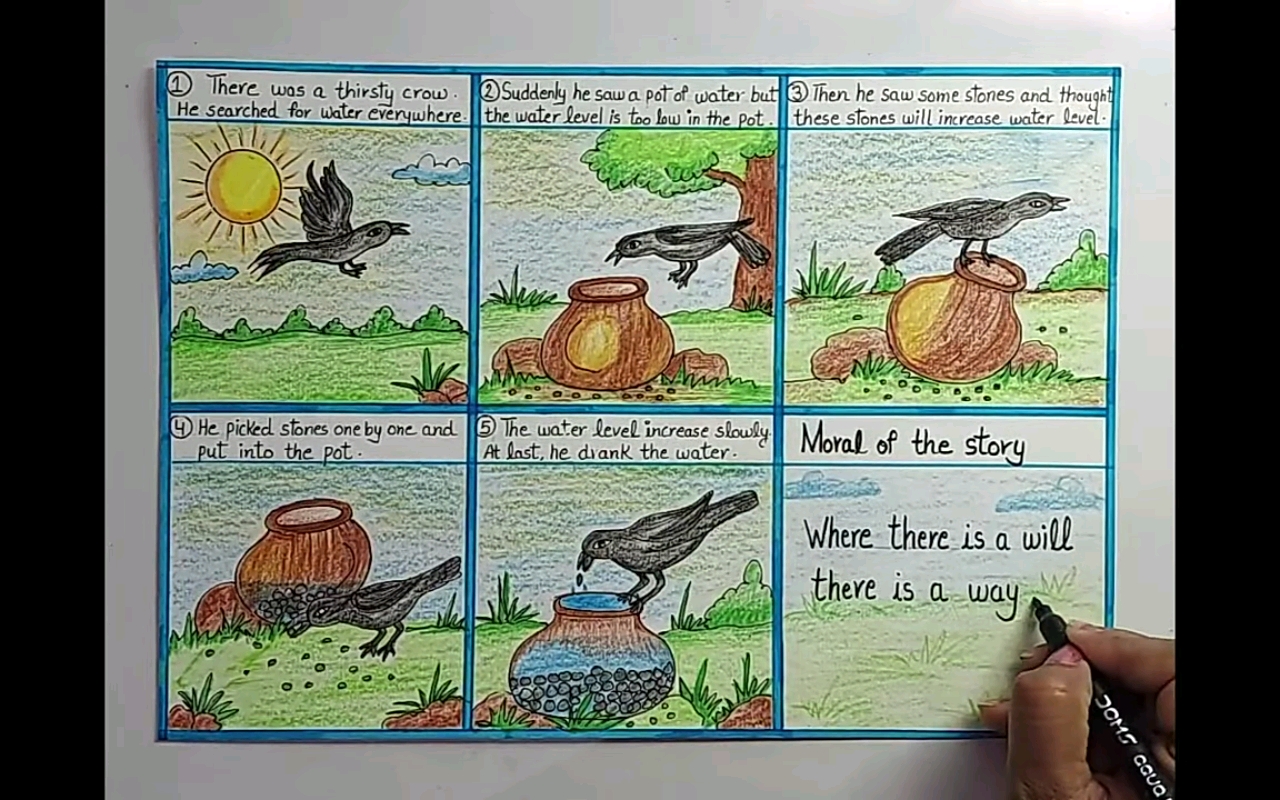 ① There was a thirsty crow.
He searched for water everywhere.
② Suddenly he saw a pot of water but
the water level is too low in the pot.
③ Then he saw some stones and thought
these stones will increase water level.
④ He picked stones one by one and
put into the pot.
⑤ The water level increase slowly.
At last, he drank the water.
Moral of the story
Where there is a will
there is a way
DOMS aqua